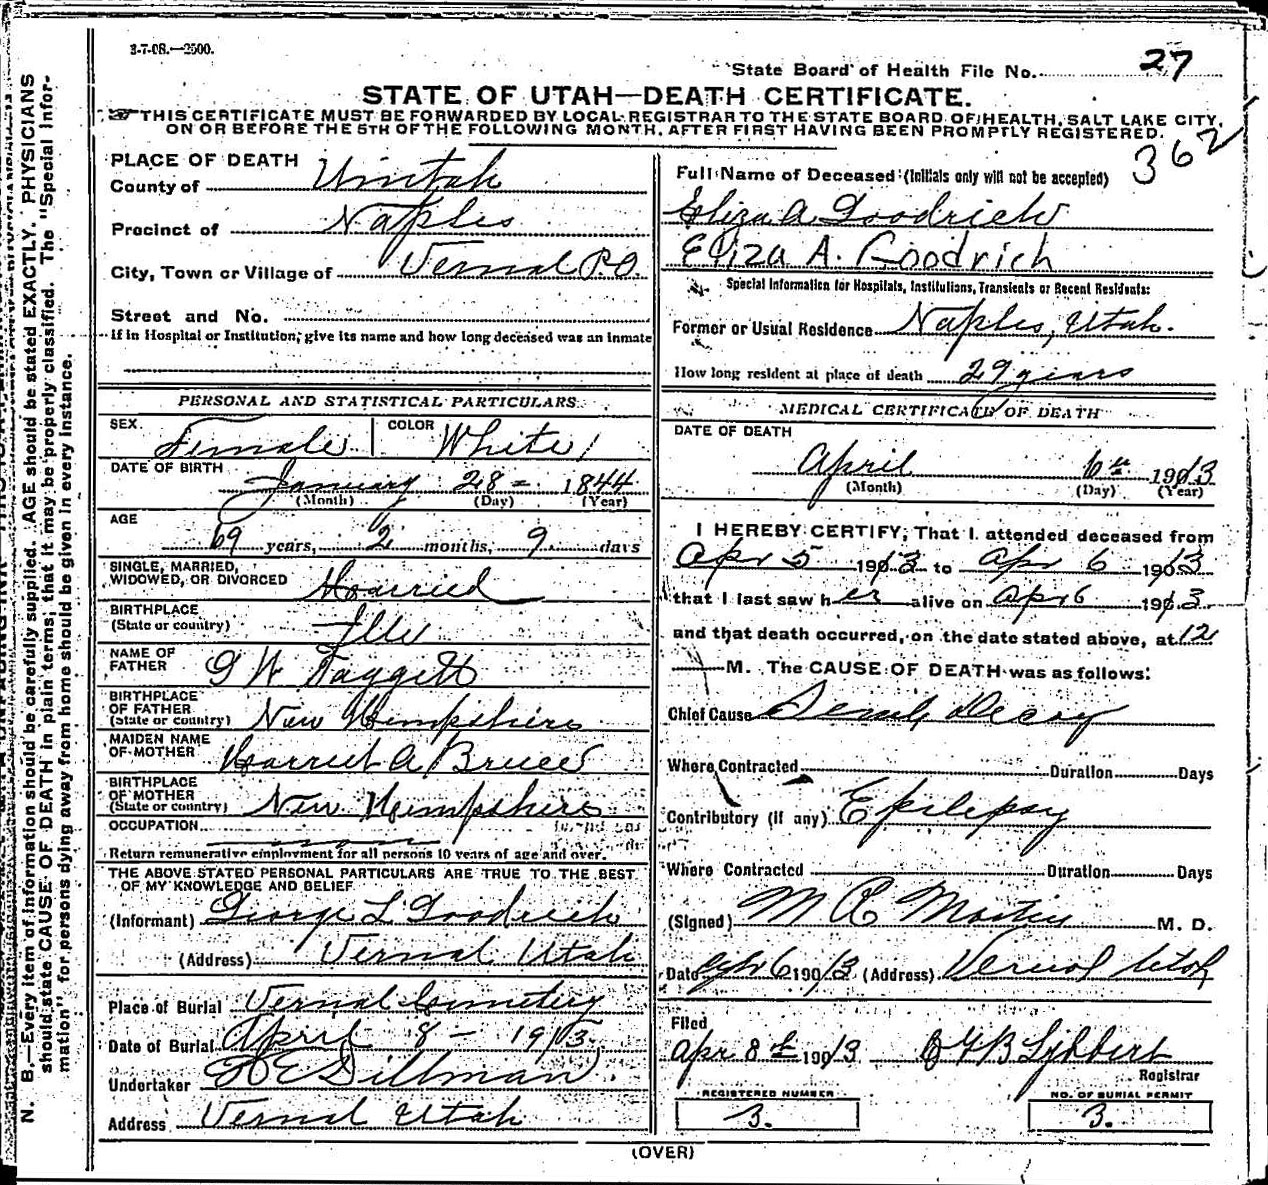 3-7-08.—2500.
State Board of Health File No. 27
STATE OF UTAH—DEATH CERTIFICATE.
THIS CERTIFICATE MUST BE FORWARDED BY LOCAL REGISTRAR TO THE STATE BOARD OF HEALTH, SALT LAKE CITY,
ON OR BEFORE THE 5TH OF THE FOLLOWING MONTH, AFTER FIRST HAVING BEEN PROMPTLY REGISTERED.
362
PLACE OF DEATH
County of Uintah
Precinct of Naples
City, Town or Village of Vernal P.O.
Street and No.
If in Hospital or Institution, give its name and how long deceased was an inmate
PERSONAL AND STATISTICAL PARTICULARS
SEX. Female COLOR White
DATE OF BIRTH January 28 - 1844
(Month) (Day) (Year)
AGE
69 years, 2 months, 9 days
SINGLE, MARRIED,
WIDOWED, OR DIVORCED Married
BIRTHPLACE
(State or country) Ills
NAME OF
FATHER G W Taggett
BIRTHPLACE
OF FATHER
(State or country) New Hempshire
MAIDEN NAME
OF MOTHER Harriet A Bruce
BIRTHPLACE
OF MOTHER
(State or country) New Hempshire
OCCUPATION
Return remunerative employment for all persons 10 years of age and over.
THE ABOVE STATED PERSONAL PARTICULARS ARE TRUE TO THE BEST
OF MY KNOWLEDGE AND BELIEF
(Informant) George L Goodrich
(Address) Vernal Utah
Place of Burial Vernal Cemetery
Date of Burial April 8 - 1913
Undertaker Dillman
Address Vernal Utah
Full Name of Deceased (Initials only will not be accepted)
Eliza A Goodrich
Eliza A. Goodrich
Special Information for Hospitals, Institutions, Transients or Recent Residents:
Former or Usual Residence Naples, Utah.
How long resident at place of death 29 years
MEDICAL CERTIFICATE OF DEATH
DATE OF DEATH
April 6th 1913
(Month) (Day) (Year)
I HEREBY CERTIFY, That I attended deceased from
Apr 5 1913 to Apr 6 1913
that I last saw her alive on Apr 6 1913
and that death occurred, on the date stated above, at 12
M. The CAUSE OF DEATH was as follows:
Chief Cause Senile Decay
Where Contracted Duration Days
Contributory (if any) Epilepsy
Where Contracted Duration Days
(Signed) M. D.
Date Apr 6 1913 (Address) Vernal Utah
Filed
Apr 8th 1913
Registrar
REGISTERED NUMBER
3.
NO. OF BURIAL PERMIT
3.
(OVER)
N. B.—Every item of information should be carefully supplied. AGE should be stated EXACTLY. PHYSICIANS
should state CAUSE OF DEATH in plain terms, that it may be properly classified. The "Special Infor-
mation" for persons dying away from home should be given in every instance.